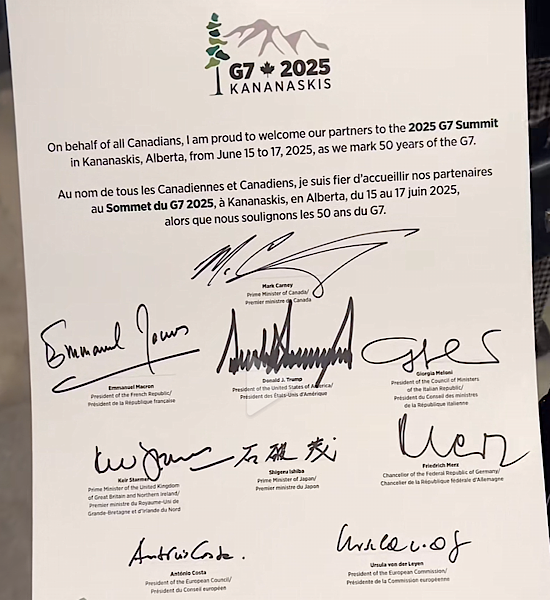 G7 2025
KANANASKIS
On behalf of all Canadians, I am proud to welcome our partners to the 2025 G7 Summit
in Kananaskis, Alberta, from June 15 to 17, 2025, as we mark 50 years of the G7.
Au nom de tous les Canadiennes et Canadiens, je suis fier d'accueillir nos partenaires
au Sommet du G7 2025, à Kananaskis, en Alberta, du 15 au 17 juin 2025,
alors que nous soulignons les 50 ans du G7.
Mark Carney
Prime Minister of Canada/
Premier ministre du Canada
Emmanuel
Emmanuel Macron
President of the French Republic/
Président de la République française
Donald J. Trump
President of the United States of America/
Président des États-Unis d'Amérique
Giorgia Meloni
President of the Council of Ministers
of the Italian Republic/
Président du Conseil des ministres
de la République italienne
Keir Starmer
Prime Minister of the United Kingdom
of Great Britain and Northern Ireland/
Premier ministre du Royaume-Uni de
Grande-Bretagne et d'Irlande du Nord
石破茂
Shigeru Ishiba
Prime Minister of Japan/
Premier ministre du Japon
Merz
Friedrich Merz
Chancellor of the Federal Republic of Germany/
Chancelier de la République fédérale d'Allemagne
António Costa
António Costa
President of the European Council/
Président du Conseil européen
Ursula von der Leyen
President of the European Commission/
Présidente de la Commission européenne